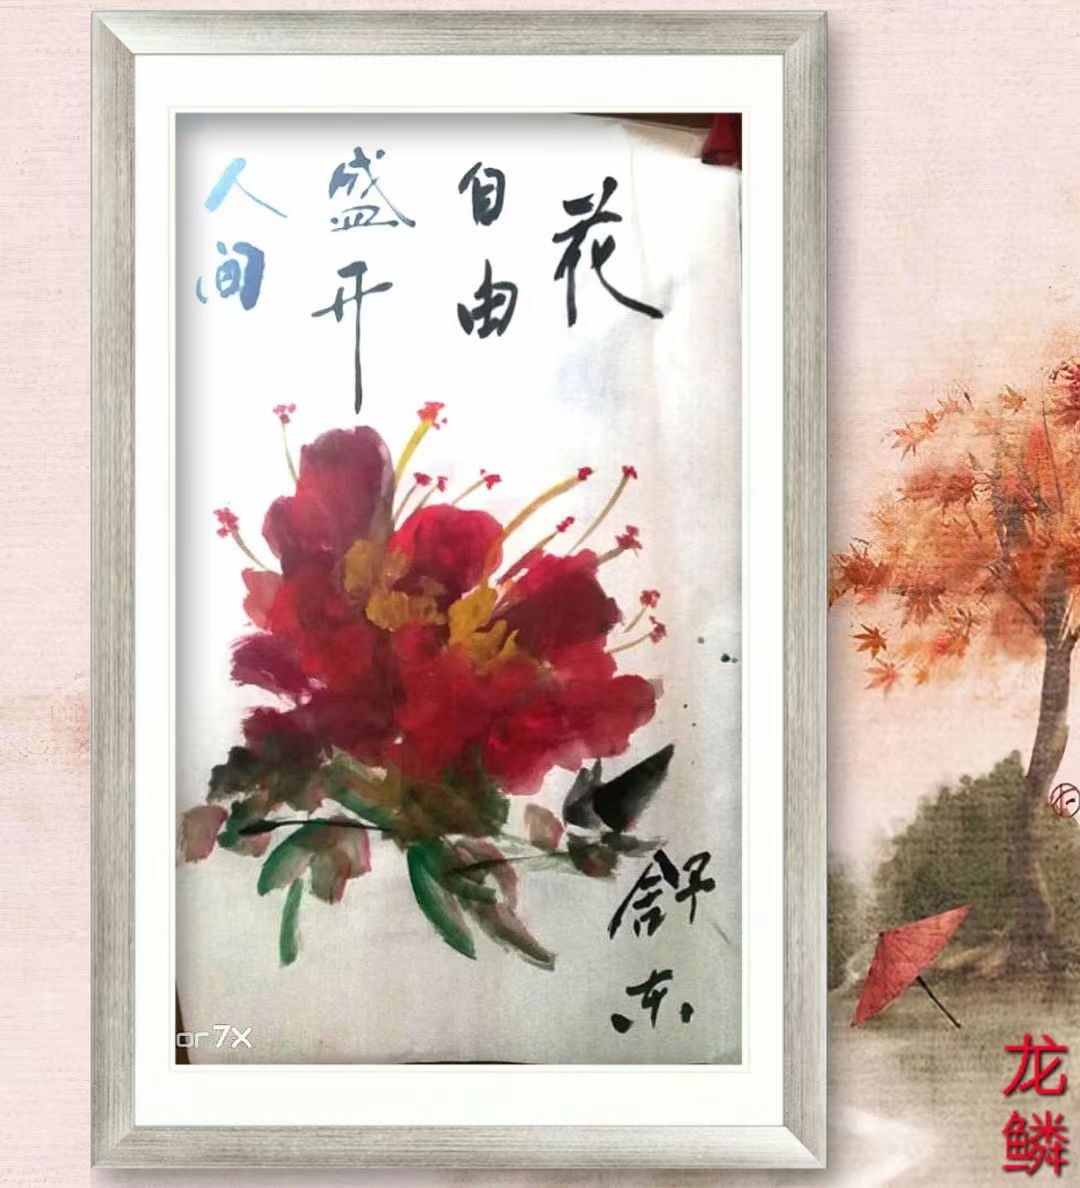 花
自由
盛开
人间
舒东
or 7X
龙鳞